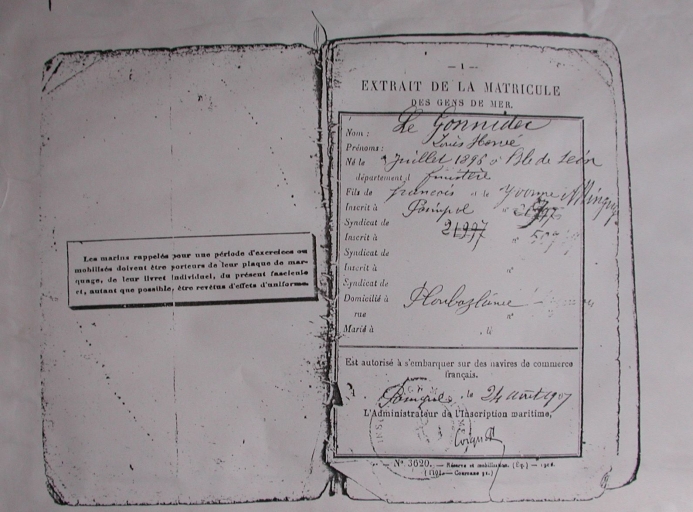 Les marins rappelés pour une période d'exercices ou
mobilisés doivent être porteurs de leur plaque de mar-
quage, de leur livret individuel, du présent fascicule
et, autant que possible, être revêtus d'effets d'uniforme.
— 1 —
EXTRAIT DE LA MATRICULE
DES GENS DE MER.
Nom : Le Gonnidec
Prénoms : Louis Hervé
Né le Juillet à de Léon
département d finistère
Fils de françois et de Yvonne
Inscrit à Paimpol n°
Syndicat de 21997
Inscrit à n°
Syndicat de
Inscrit à n°
Syndicat de
Domicilié à Ploubazlanec
rue n°
Marié à li
Est autorisé à s'embarquer sur des navires de commerce
français.
A Paimpol, le 24 août 1907
L'Administrateur de l'Inscription maritime,
N° 3620. — Réserve et mobilisation.